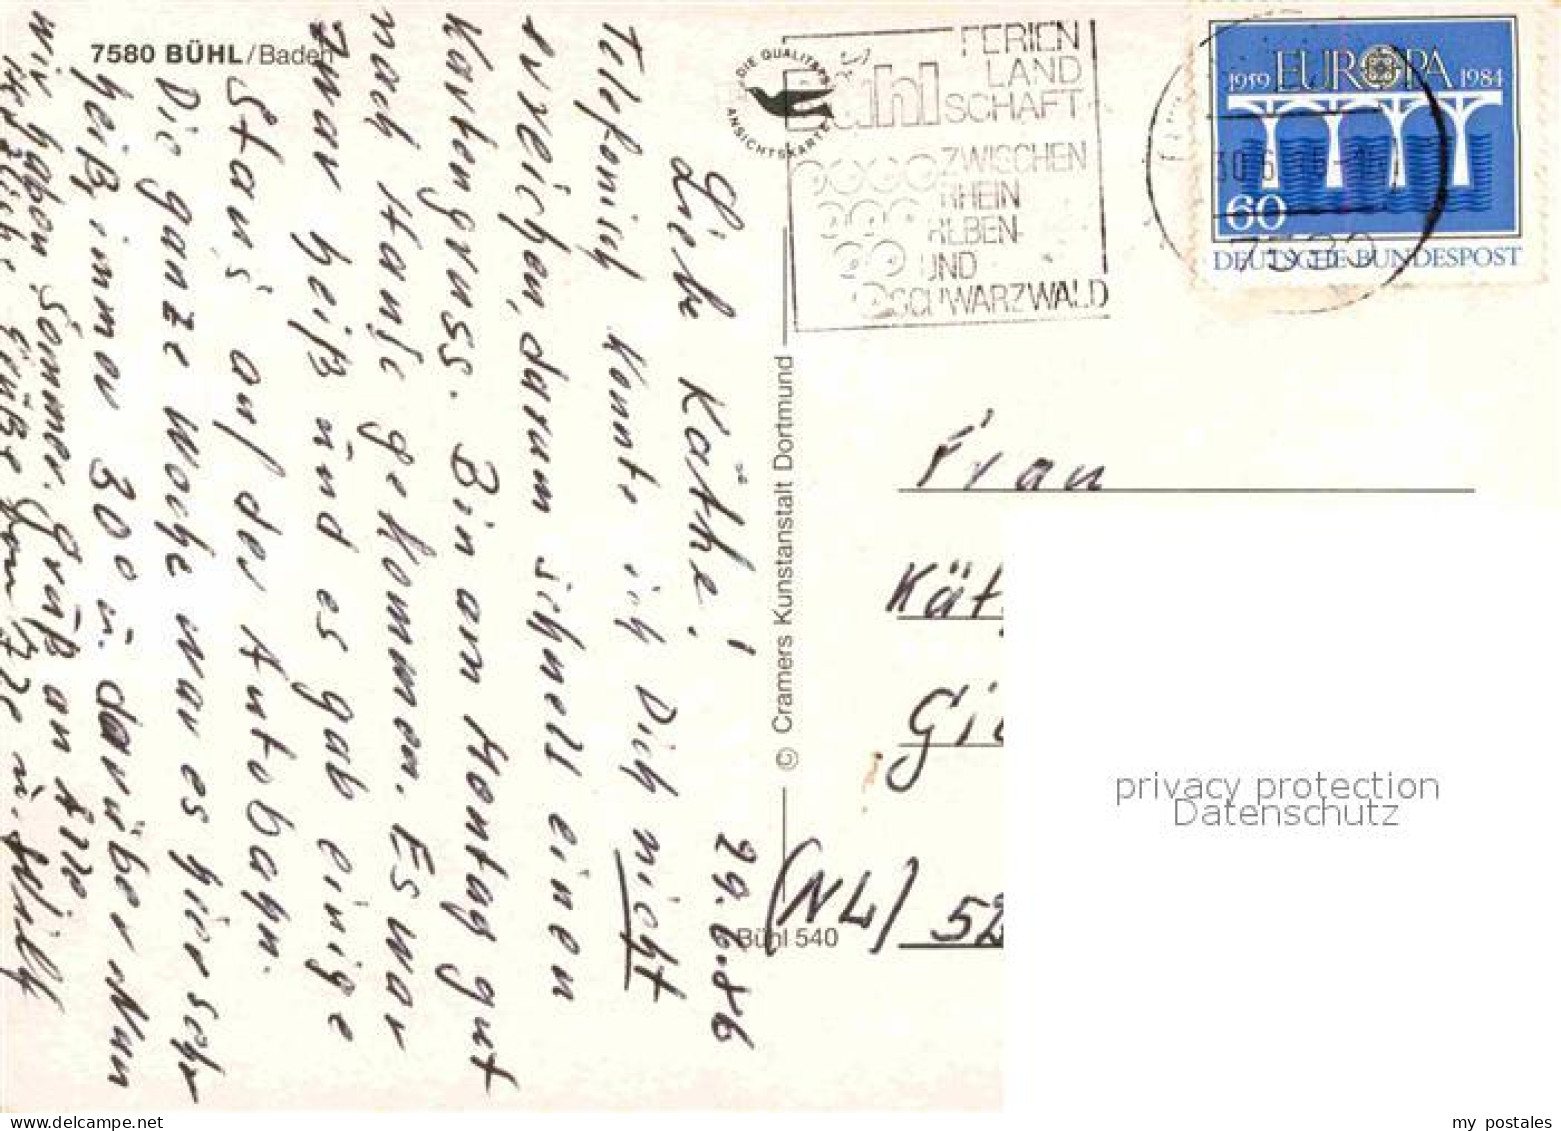 7580 BÜHL/Baden
29.6.86
Liebe Käthe!
Telefonisch konnte ich Dich nicht
erreichen, darum schnell einen
Kartengruss. Bin am Montag gut
nach Hause gekommen. Es war
zwar heiß und es gab einige
Staus auf der Autobahn.
Die ganze Woche war es hier sehr
heiß, immer 30° u. darüber. Nun
wir haben Sommer. Gruß an
Herzliche Grüße u. Willy
© Cramers Kunstanstalt Dortmund
Bühl 540
DIE QUALITÄTS
ANSICHTSKARTE
Bühl
FERIEN
LAND
SCHAFT
ZWISCHEN
RHEIN
REBEN-
UND
SCHWARZWALD
1959 EUROPA 1984
60
DEUTSCHE BUNDESPOST
30.6.
7580
Frau
Kät
Gi
(NL) 52
privacy protection
Datenschutz
my_postales